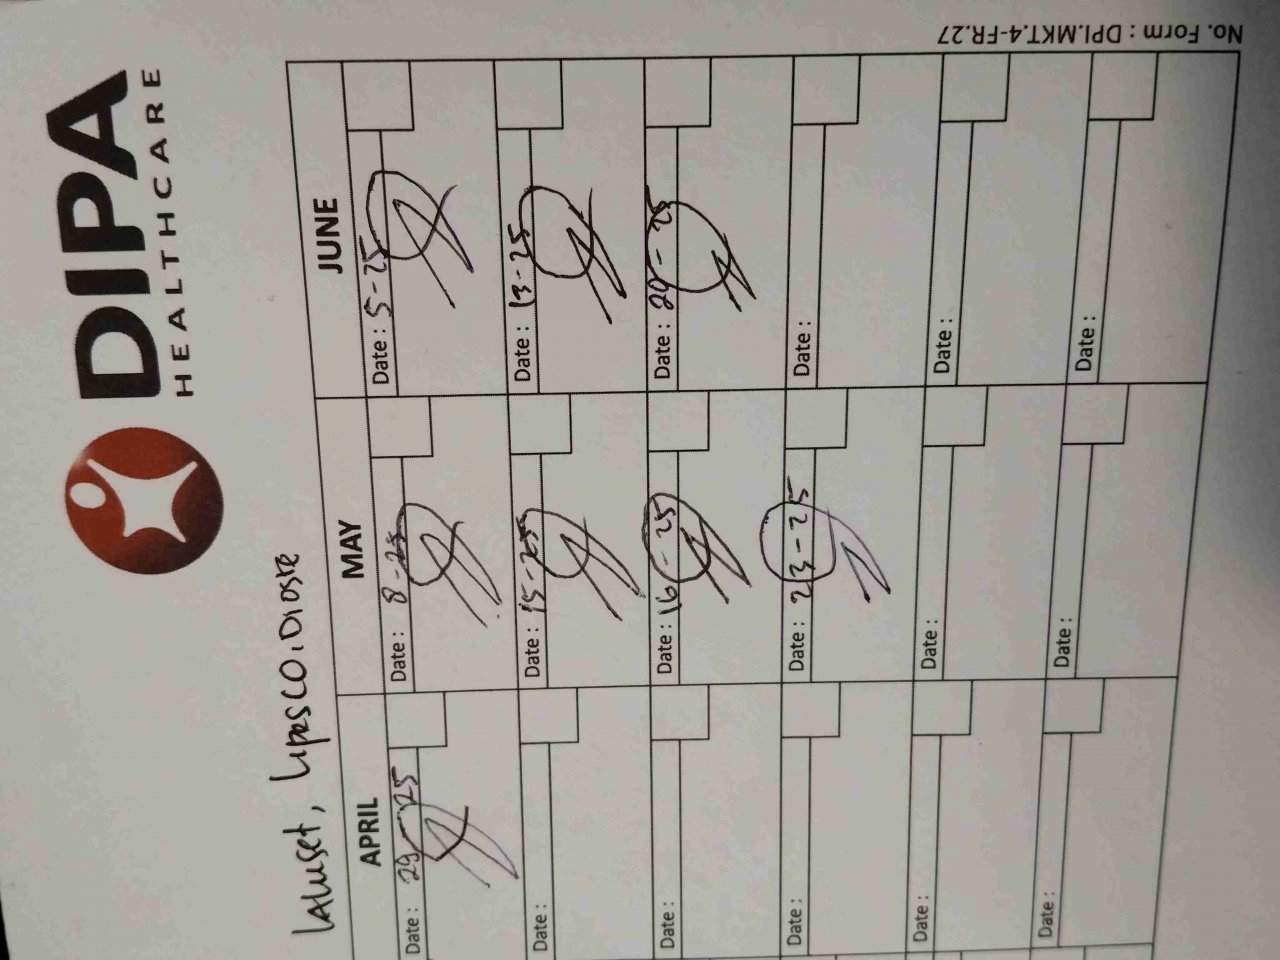 DIPA
HEALTHCARE
Laluset, Lipesco, Dioste
APRIL MAY JUNE
Date : 29 25 Date : 8-25 Date : 5-25
Date : Date : 15-25 Date : 13-25
Date : Date : 16-25 Date : 20-25
Date : Date : 23-25 Date :
Date : Date : Date :
Date : Date : Date :
No. Form : DPI.MKT.4-FR.27